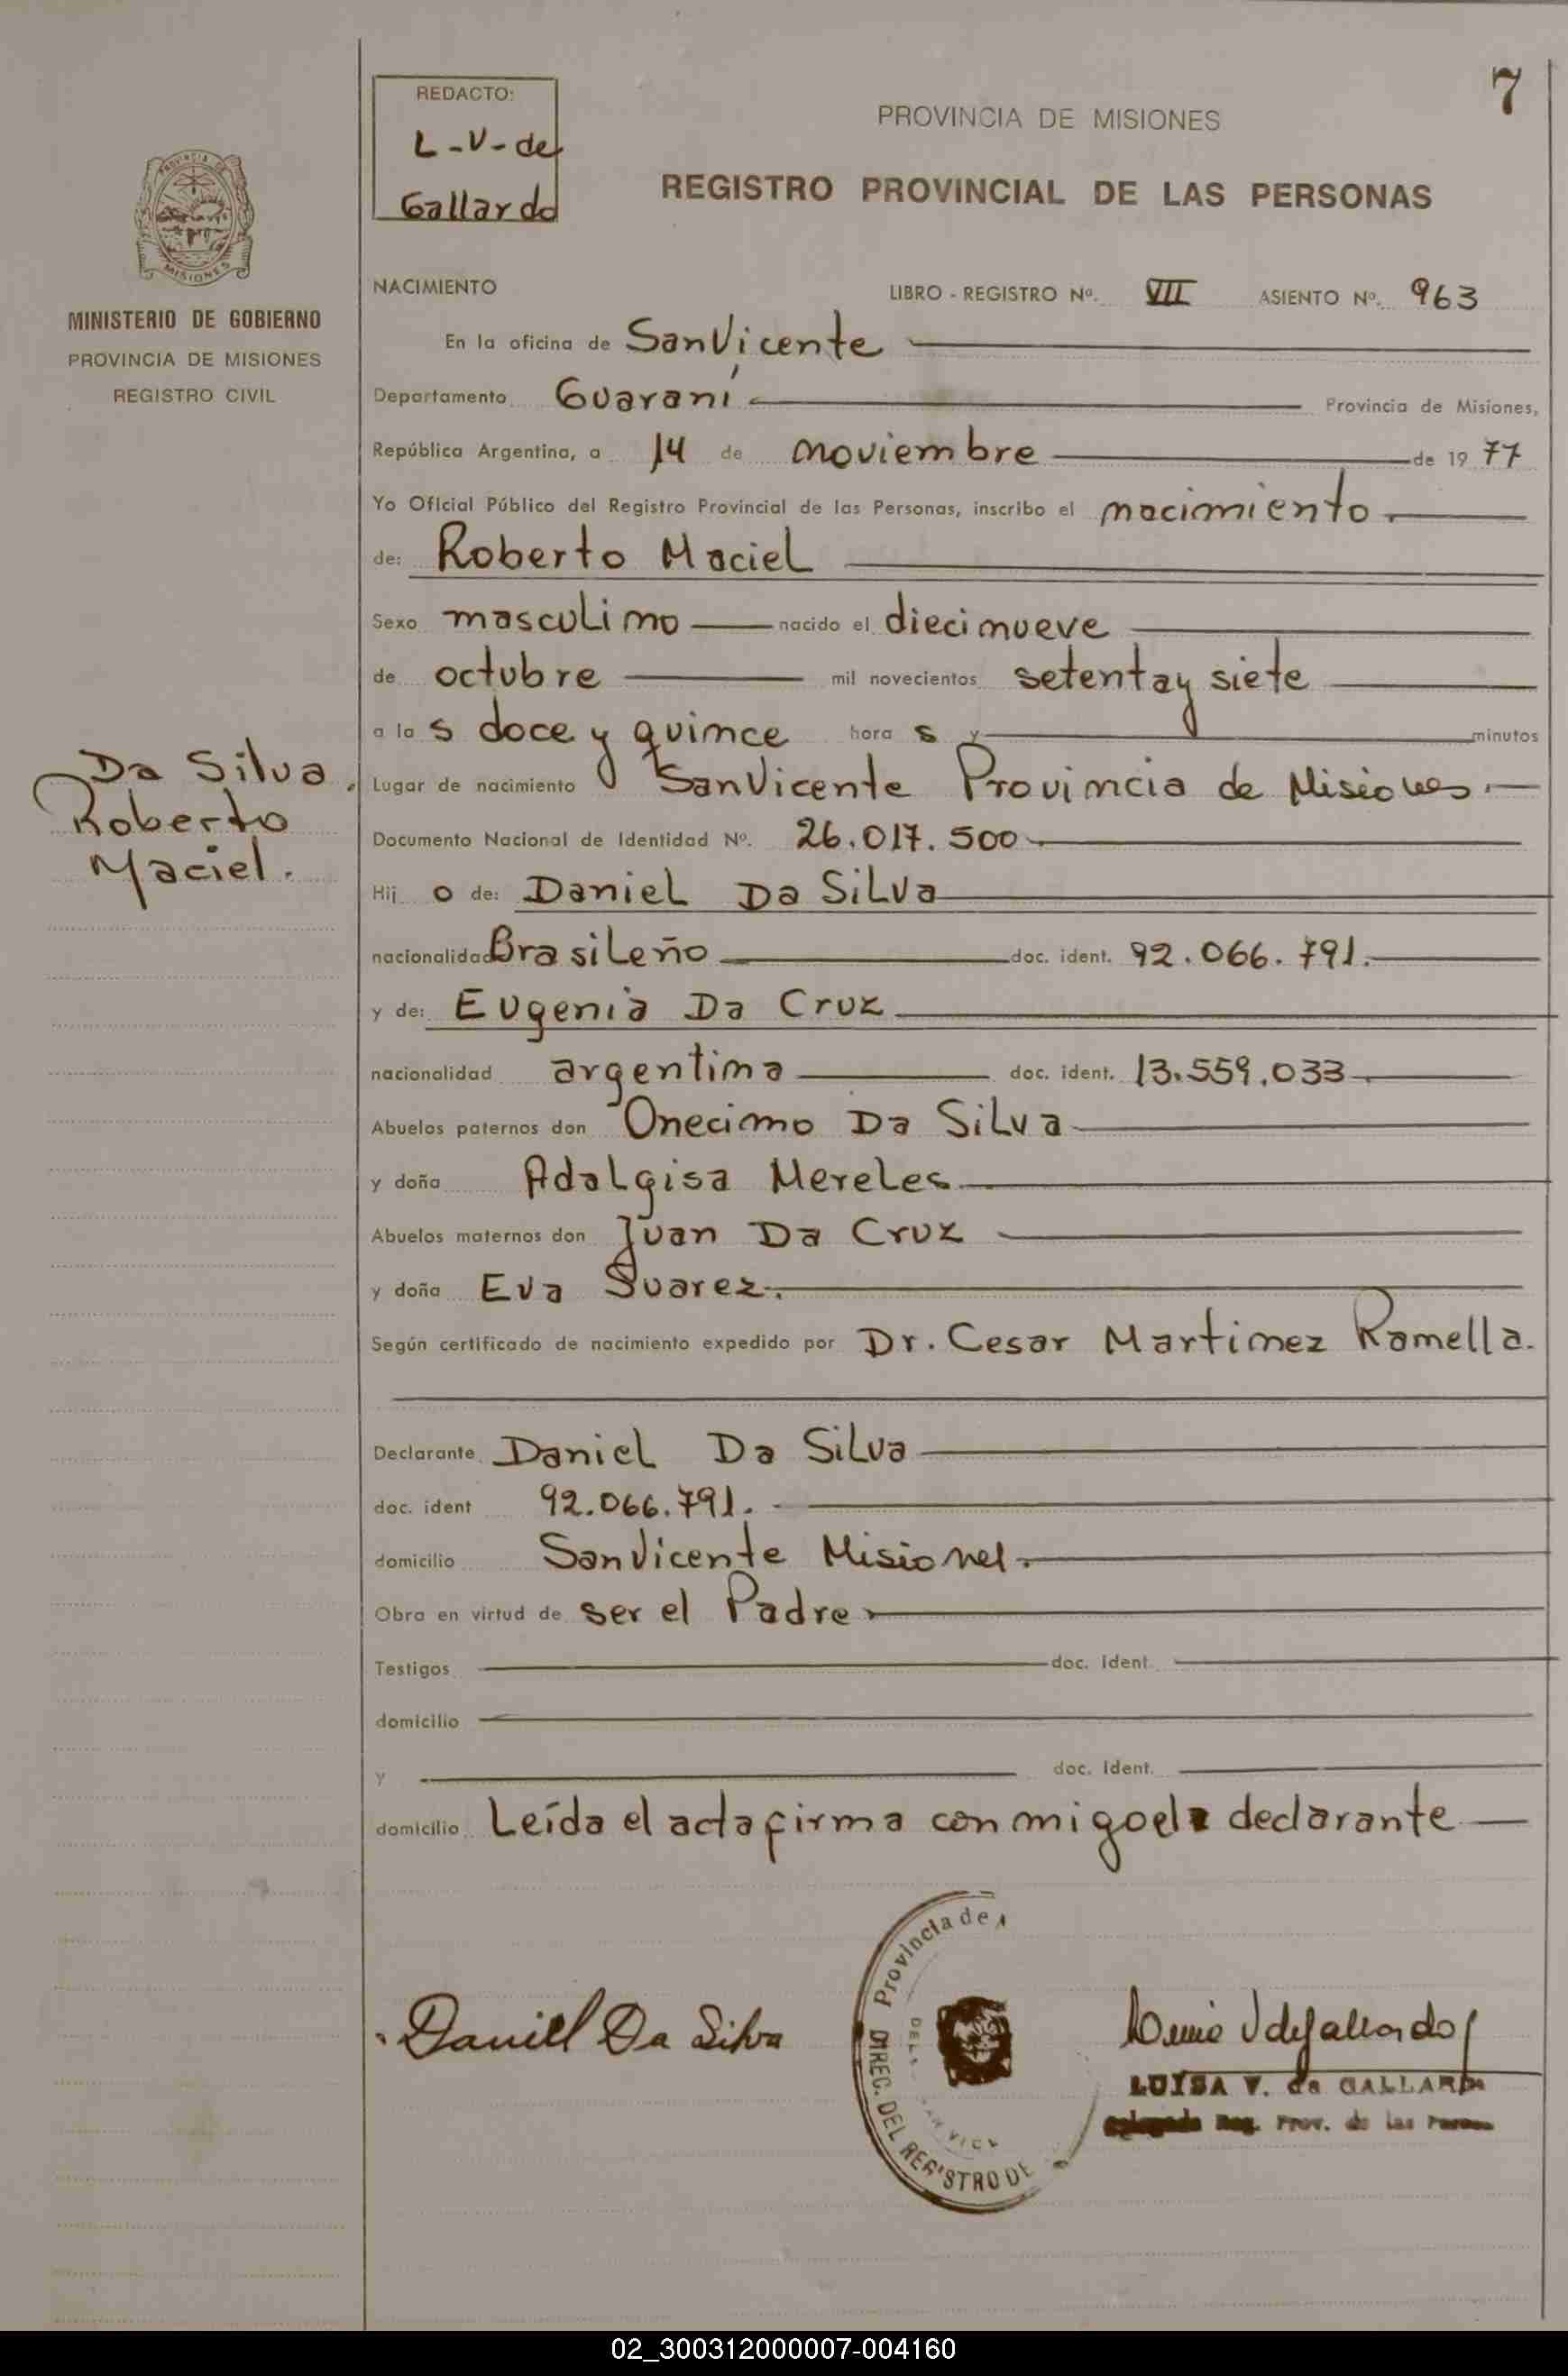 7
REDACTO:
L-V-de
Gallardo
PROVINCIA DE MISIONES
REGISTRO PROVINCIAL DE LAS PERSONAS
PROVINCIA DE
MISIONES
MINISTERIO DE GOBIERNO
PROVINCIA DE MISIONES
REGISTRO CIVIL
NACIMIENTO LIBRO - REGISTRO Nº. VII ASIENTO Nº. 963
En la oficina de San Vicente
Departamento Guaraní Provincia de Misiones,
República Argentina, a 14 de noviembre de 19 77
Yo Oficial Público del Registro Provincial de las Personas, inscribo el nacimiento
de: Roberto Maciel
Sexo masculino nacido el diecinueve
de octubre mil novecientos setenta y siete
a la s doce y quince hora s y minutos
Da Silva
Roberto
Maciel.
Lugar de nacimiento San Vicente Provincia de Misiones.
Documento Nacional de Identidad Nº. 26.017.500
Hij o de: Daniel Da Silva
nacionalidad Brasileño doc. ident. 92.066.791.
y de: Eugenia Da Cruz
nacionalidad argentina doc. ident. 13.559.033
Abuelos paternos don Onecimo Da Silva
y doña Adalgisa Mereles
Abuelos maternos don Juan Da Cruz
y doña Eva Suarez.
Según certificado de nacimiento expedido por Dr. Cesar Martinez Ramella.
Declarante Daniel Da Silva
doc. ident 92.066.791.
domicilio San Vicente Misiones.
Obra en virtud de ser el Padre
Testigos doc. ident.
domicilio
y doc. ident.
domicilio Leída el acta firma conmigo el declarante
Provincia de
DIREC. DEL REGISTRO DE
Daniel Da Silva
LUISA V. de GALLARDO
Reg. Prov. de las
02_300312000007-004160